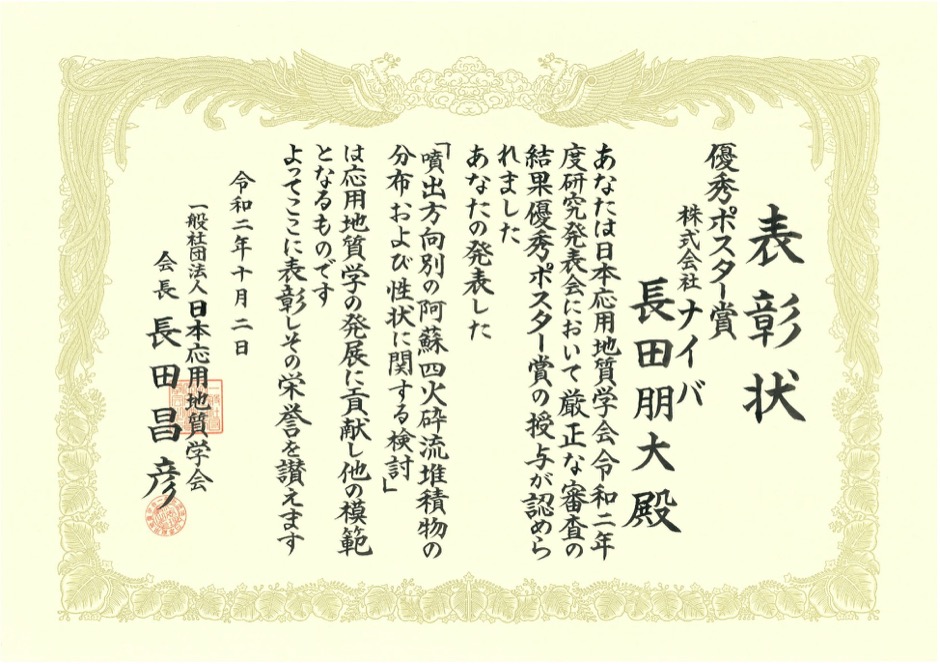 表彰状
優秀ポスター賞
株式会社 ナイバ
長田朋大殿
あなたは日本応用地質学会令和二年
度研究発表会において厳正な審査の
結果優秀ポスター賞の授与が認めら
れました
あなたの発表した
「噴出方向別の阿蘇四火砕流堆積物の
分布および性状に関する検討」
は応用地質学の発展に貢献し他の模範
となるものです
よってここに表彰しその栄誉を讃えます
令和二年十月二日
一般社団法人 日本応用地質学会
会長 長田昌彦